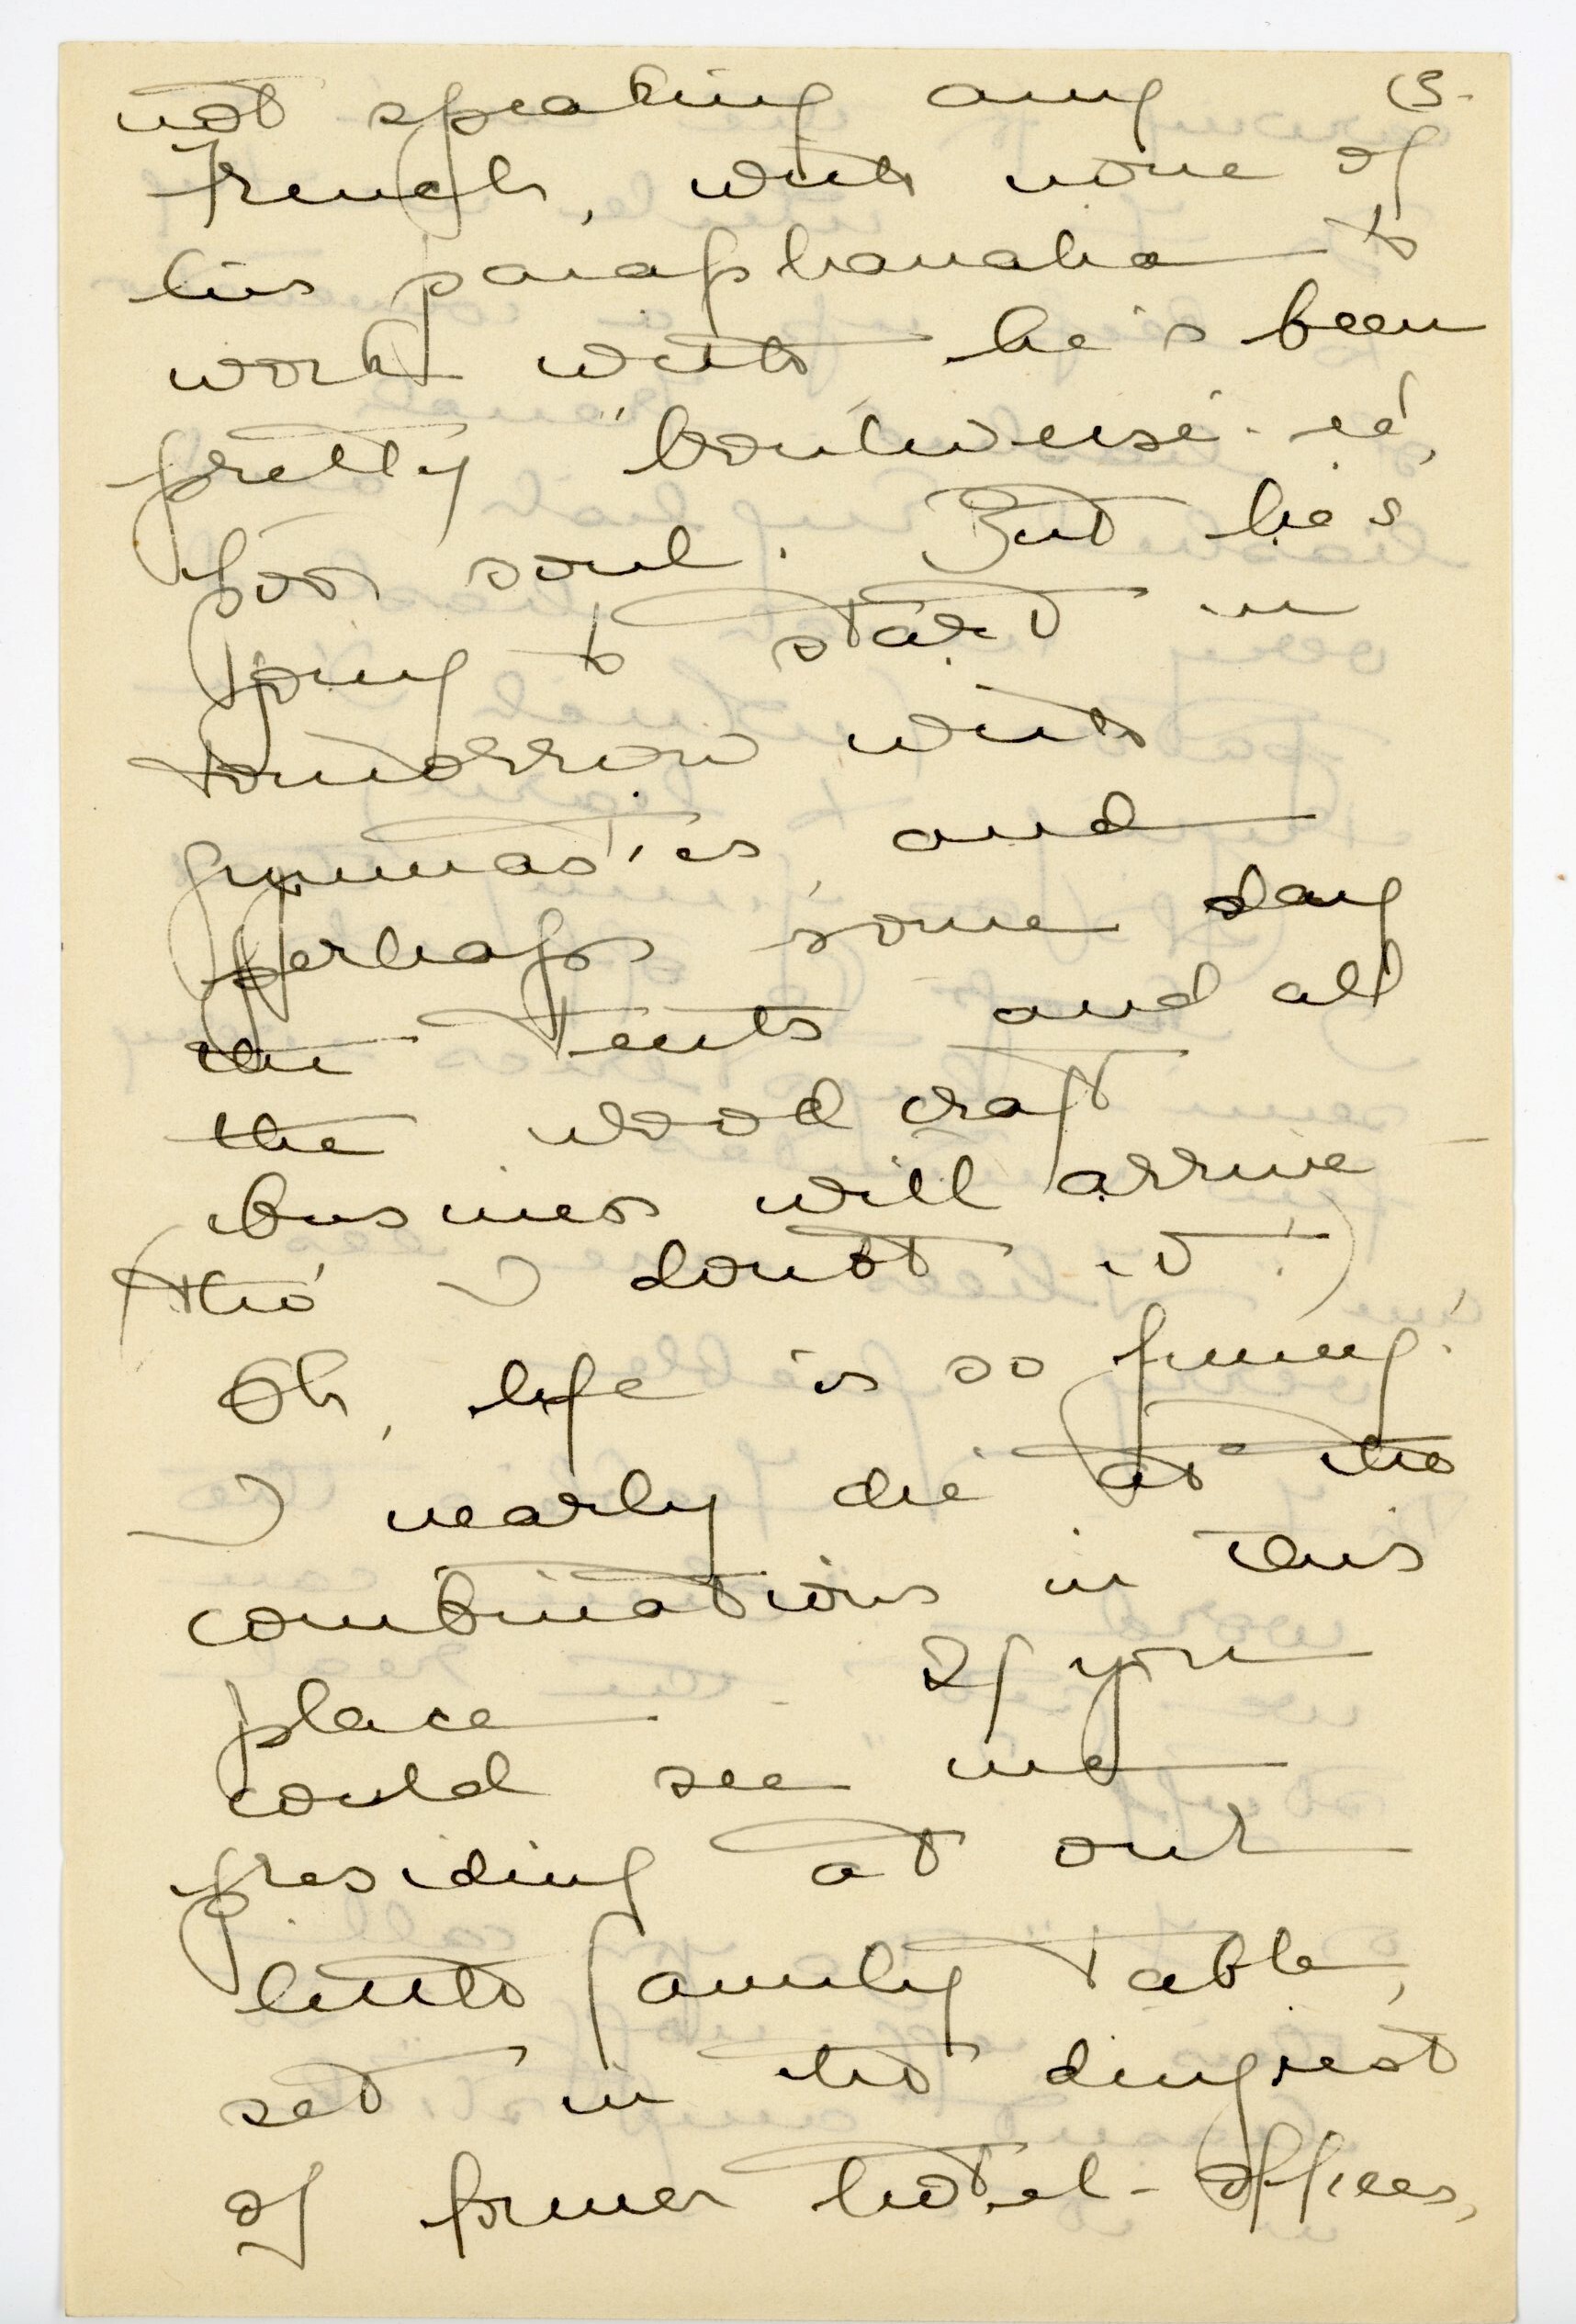 not speaking any
French, with none of
his paraphanalia to
work with he's been
pretty "bouleversé-ed,"
poor soul. But he's
going to start in
tomorrow with
gymnastics and
perhaps some day
the tents and all
the wood craft
business will arrive -
(tho' I doubt it!)
Oh, life is so funny!
I nearly die at the
combinations in this
place. If you
could see me
presiding at our
little family table,
set in the dingiest
of former hotel-offices,